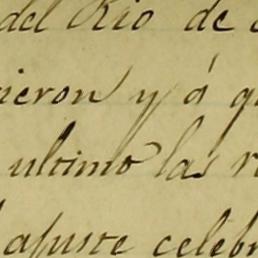 del Rio de
ieron y á q
ultimo las r
apuste celebr